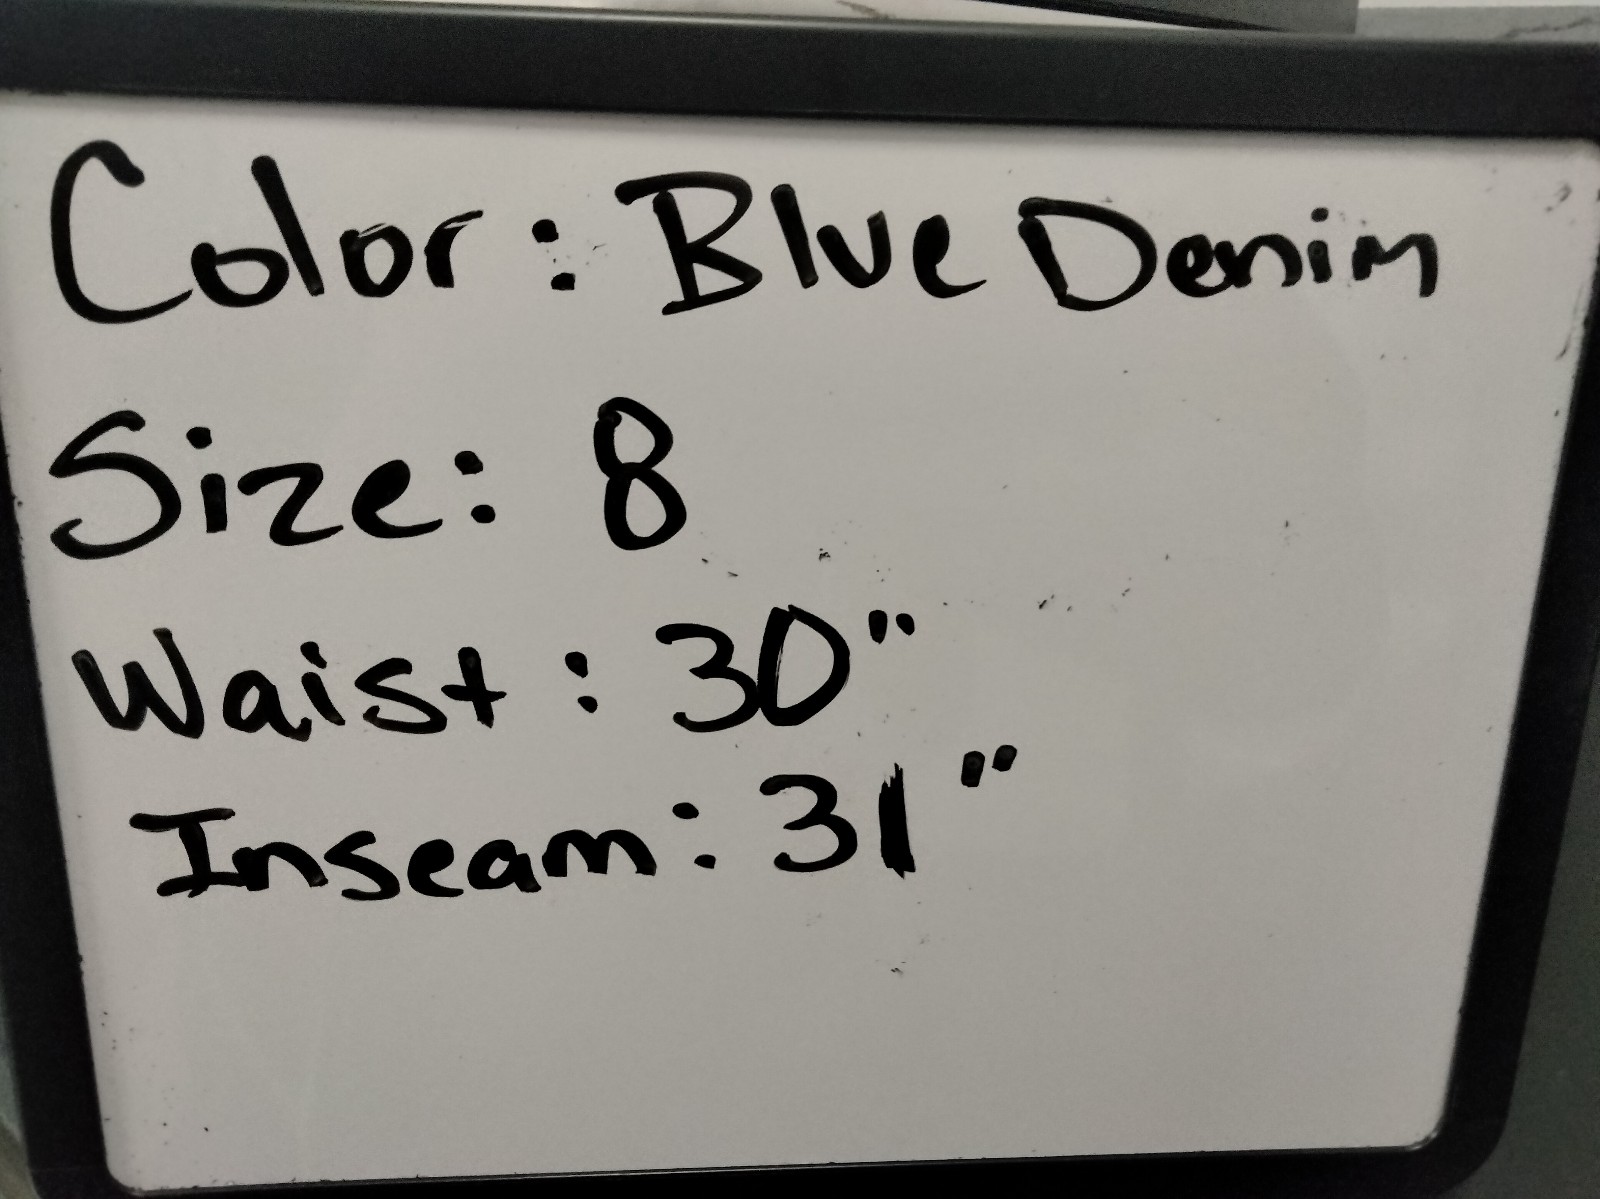 Color: Blue Denim
Size: 8
Waist: 30"
Inseam: 31"